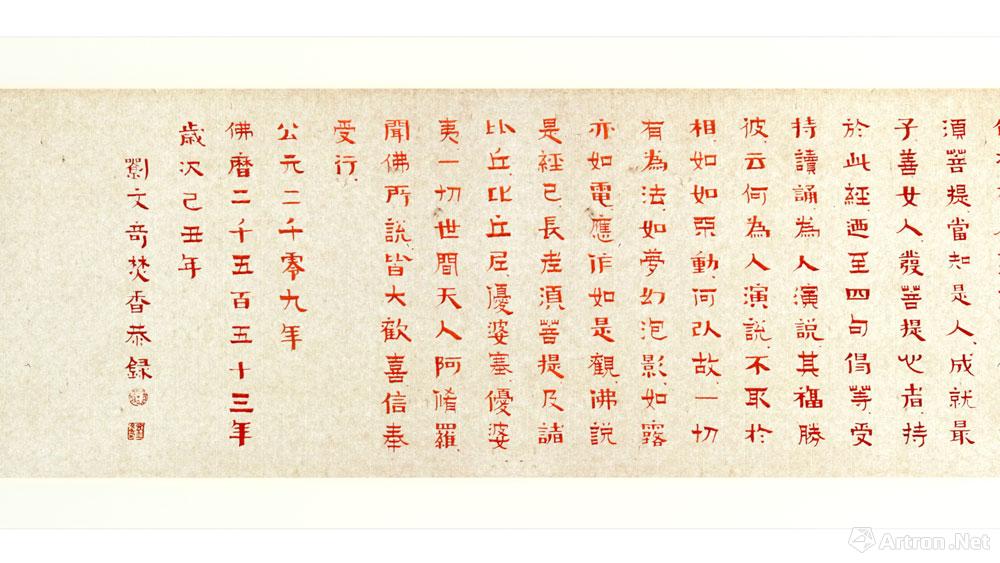 須菩提當知是人成就最
子善女人發菩提心者持
於此經迺至四句偈等受
持讀誦為人演說其福勝
彼云何為人演說不取於
相如如不動何以故一切
有為法如夢幻泡影如露
亦如電應作如是觀佛說
是經已長老須菩提及諸
比丘比丘尼優婆塞優婆
夷一切世間天人阿脩羅
聞佛所說皆大歡喜信奉
受行
公元二千零九年
佛曆二千五百五十三年
歲次己丑年
劉文奇焚香恭錄
Artron.Net